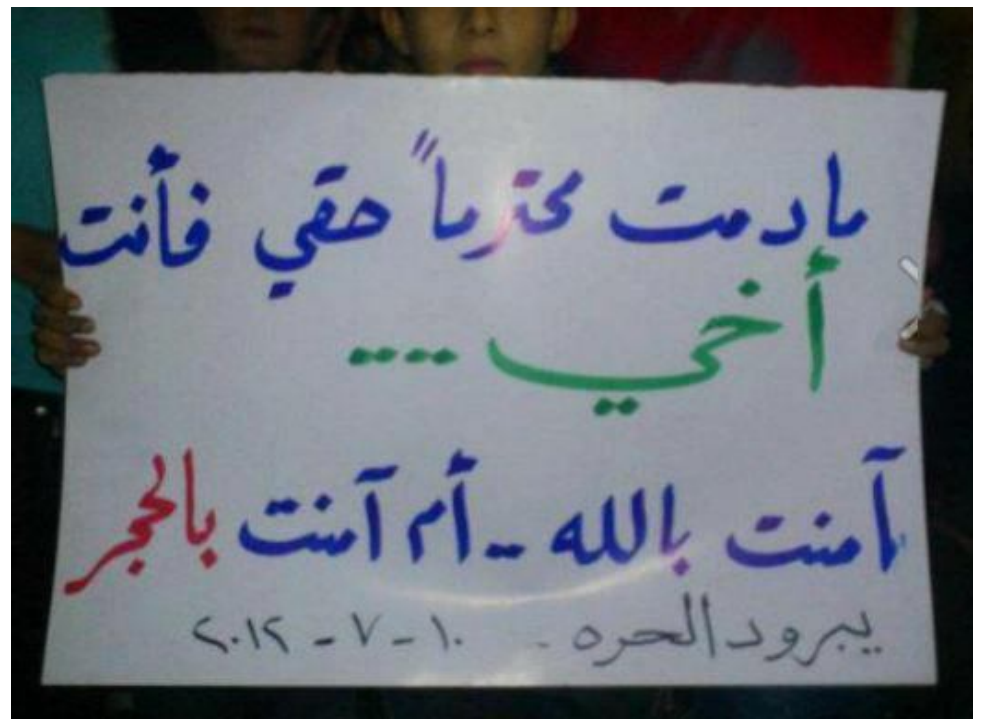 مادمت محترماً حقي فأنت
أخي ....
آمنت بالله .. أم آمنت بالحجر
يبرود الحره - ١٠ - ٧ - ٢٠١٢